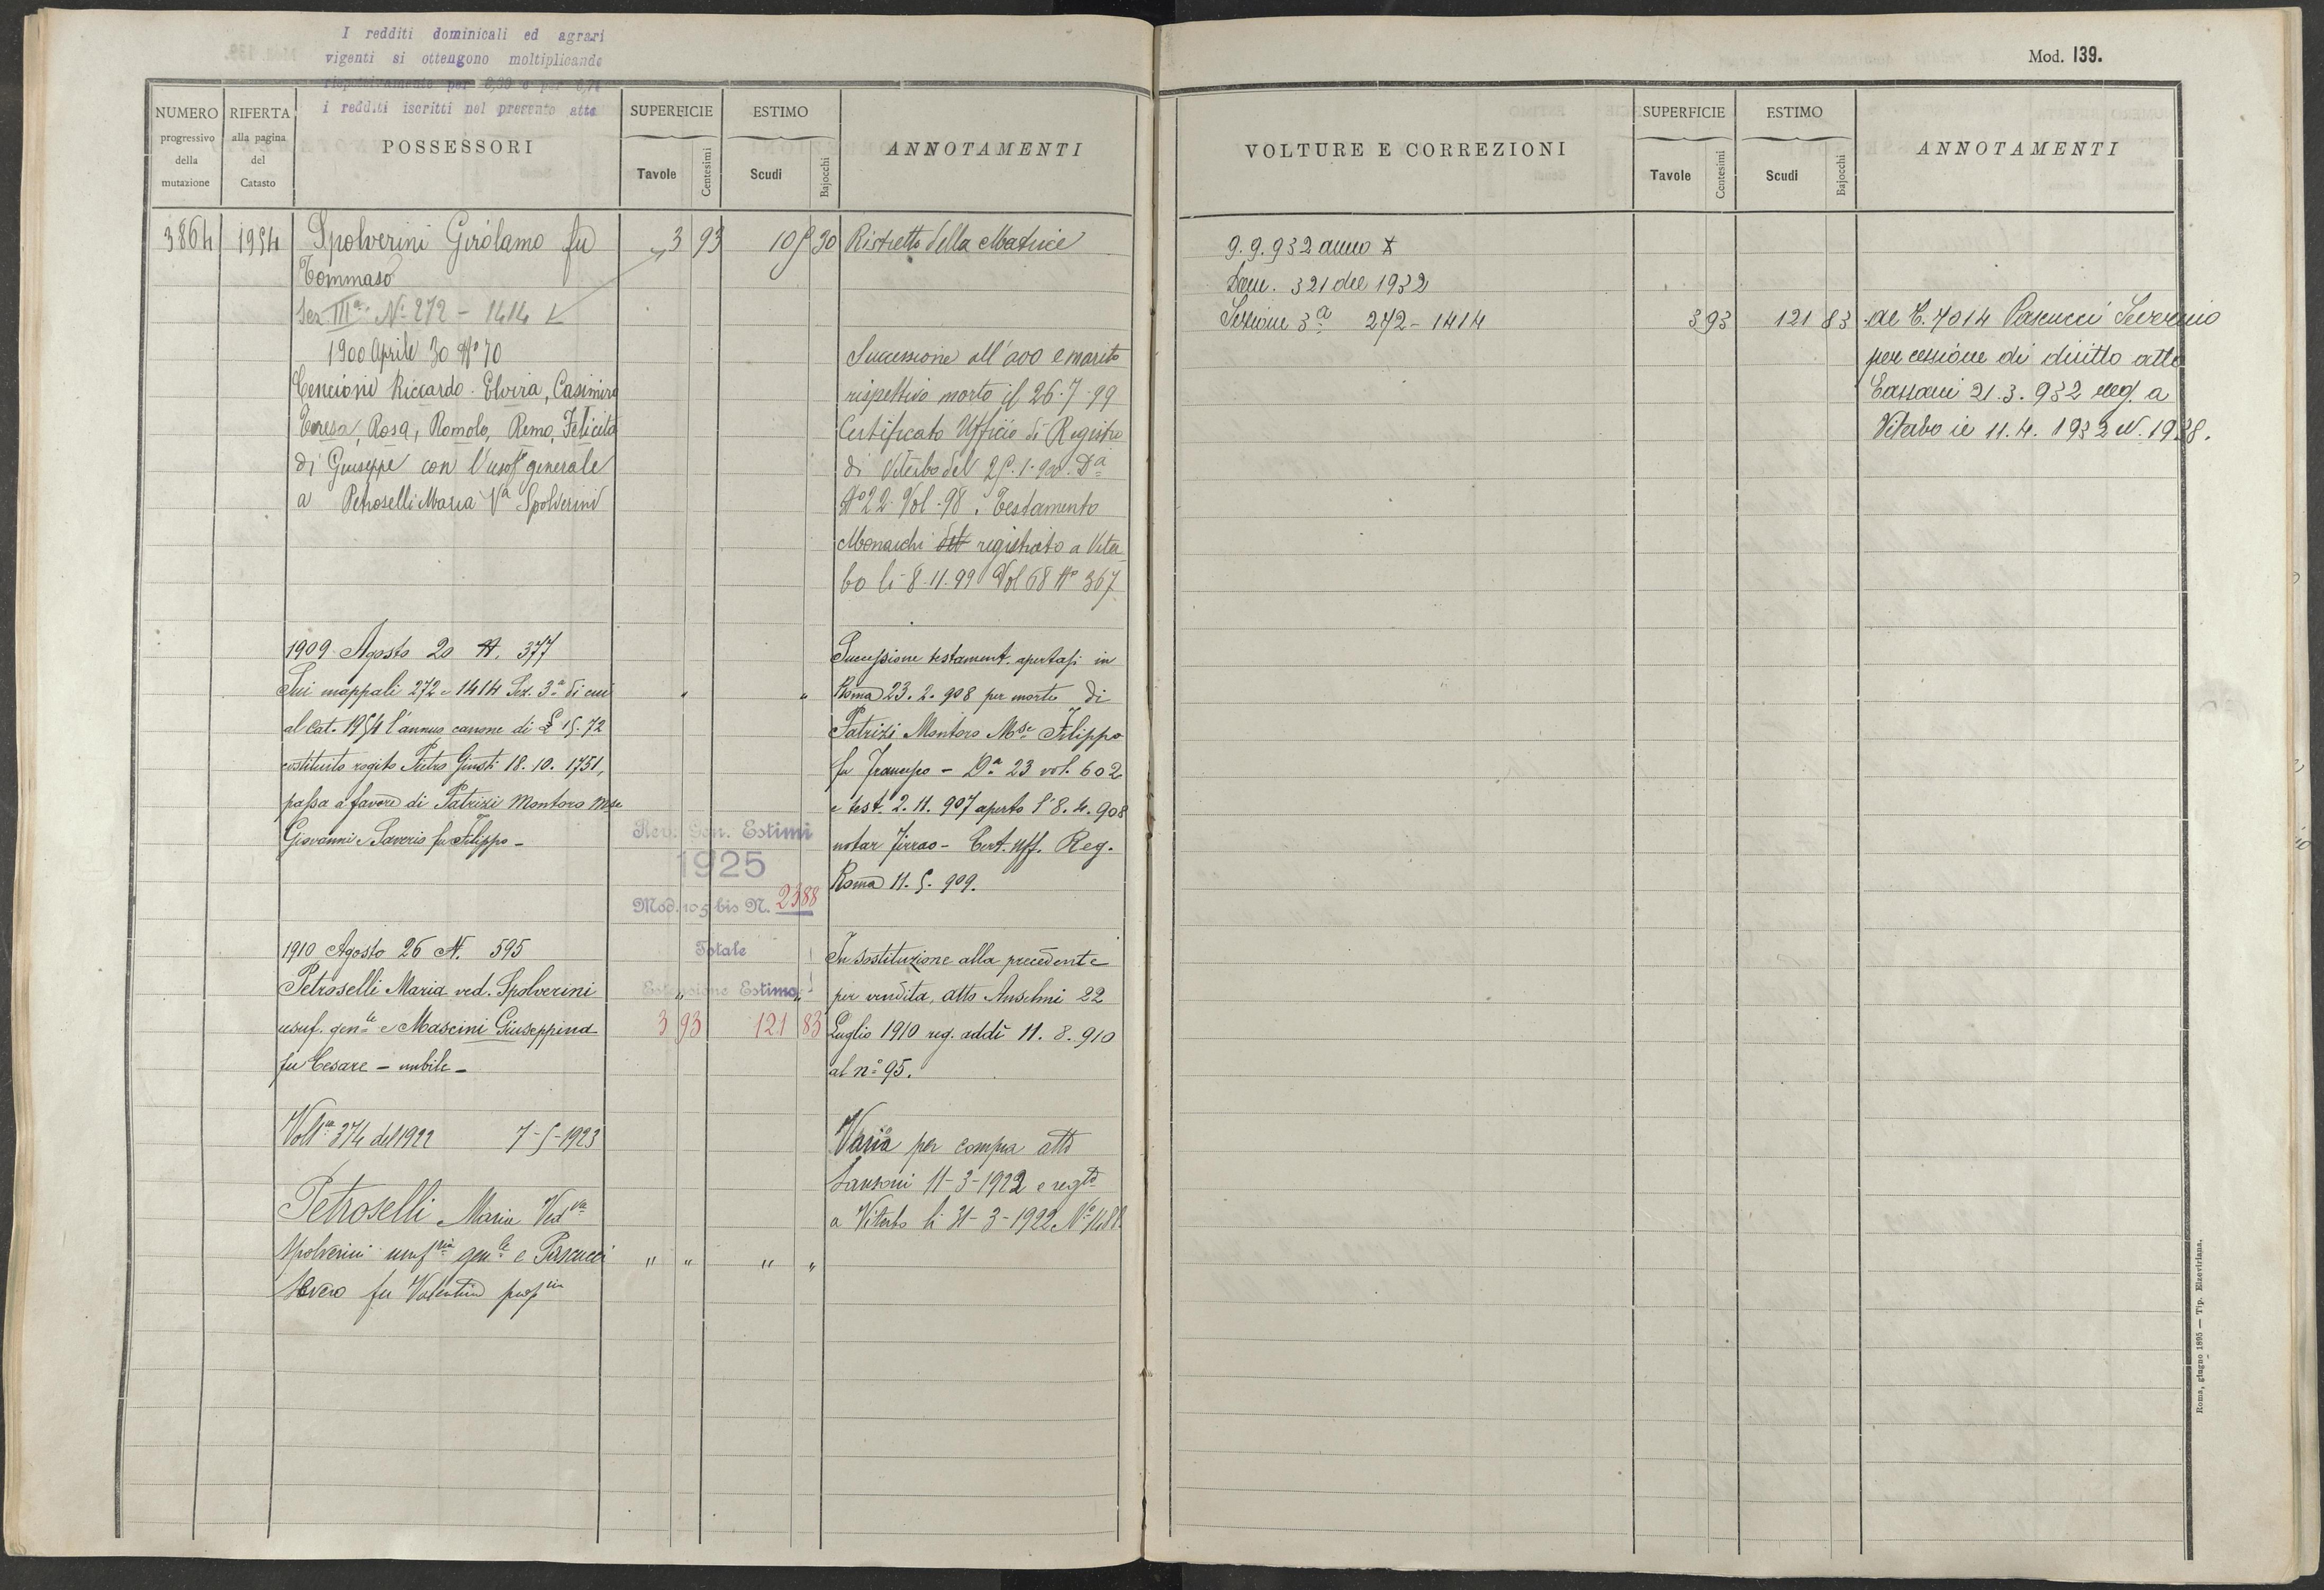 I redditi dominicali ed agrari
vigenti si ottengono moltiplicando
rispettivamente per 6,30 e per 6,74
i redditi iscritti nel presente atto
Mod. 139.
NUMERO
progressivo
della
mutazione
RIFERTA
alla pagina
del
Catasto
POSSESSORI
SUPERFICIE
Tavole
Centesimi
ESTIMO
Scudi
Bajocchi
ANNOTAMENTI
3864 1954 Spolverini Girolamo fu 3 93 105 30 Ristretto della Matrice
Tommaso
Sez IIIa N. 272 - 1414
1900 Aprile 30 No 70
Cencioni Riccardo. Elvira, Casimiro
Teresa, Rosa, Romolo, Remo, Felicita
di Giuseppe con l'usof. generale
a Petroselli Maria Va Spolverini
Successione all'avo e marito
rispettivo morto il 26.7.99
Certificato Ufficio di Registro
di Viterbo del 25.1.900. Da
No 22 Vol. 98. Testamento
Monarchi del registrato a Viter
bo li 8.11.99 Vol 68 No 367
1909 Agosto 20 N. 377
Sui mappali 272 e 1414 Sez. 3a di cui " "
al Cat. 1954 l'annuo canone di £ 15.72
costituito rogito Pietro Giusti 18.10.1751,
passa a favore di Patrizi Montoro Mse
Giovanni e Saverio fu Filippo -
Successione testament. apertasi in
Roma 23.2.908 per morte di
Patrizi Montoro Mse Filippo
fu - Da 23 vol. 602
e test. 2.11.907 aperto l'8.4.908
notar - Cert. Uff. Reg.
Roma 11.5.909.
Rev. Gen. Estimi
1925
Mod. 105 bis N. 2388
Totale
Estensione Estimo
3 93 121 83
1910 Agosto 26 N. 595
Petroselli Maria ved. Spolverini " "
usuf. genle e Mascini Giuseppina
fu Cesare - nubile -
In sostituzione alla precedente
per vendita, atto Anselmi 22
Luglio 1910 reg. addì 11.8.910
al no 95.
Volta 374 del 1922 7-5-1923
Petroselli Maria Vedva
Spolverini usufria genle e Pascucci " " " "
Severo fu Valentino
Varia per compra atto
11-3-1922 e regto
a Viterbo li 31-3-1922 No 1488
VOLTURE E CORREZIONI
SUPERFICIE
Tavole
Centesimi
ESTIMO
Scudi
Bajocchi
ANNOTAMENTI
9.9.932 anno X
321 del 1932
Sezione 3a 272 - 1414 3 93 121 83 al C. 7014 Pascucci
per cessione di diritto atto
21.3.932 reg. a
Viterbo il 11.4.1932 N. 1938.
Roma, giugno 1895 — Tip. Elzeviriana.